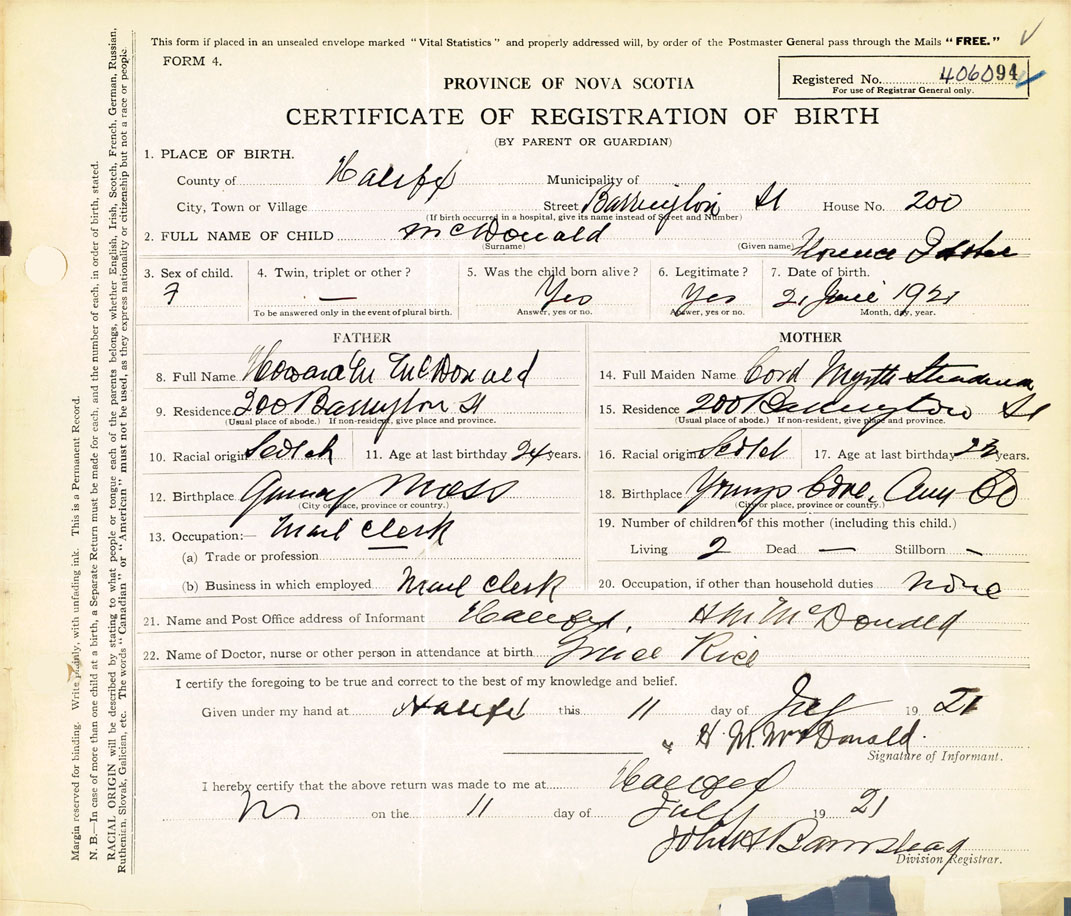 This form if placed in an unsealed envelope marked "Vital Statistics" and properly addressed will, by order of the Postmaster General pass through the Mails "FREE."
FORM 4.
Registered No. 406094
For use of Registrar General only.
PROVINCE OF NOVA SCOTIA
CERTIFICATE OF REGISTRATION OF BIRTH
(BY PARENT OR GUARDIAN)
1. PLACE OF BIRTH.
County of Halifx Municipality of
City, Town or Village Street Barrington St House No. 200
(If birth occurred in a hospital, give its name instead of Street and Number)
2. FULL NAME OF CHILD McDonald Florence
(Surname) (Given name)
3. Sex of child. 4. Twin, triplet or other? 5. Was the child born alive? 6. Legitimate? 7. Date of birth.
F — Yes Yes 21 June 1921
To be answered only in the event of plural birth. Answer, yes or no. Answer, yes or no. Month, day, year.
FATHER
8. Full Name Howard M McDonald
9. Residence 200 Barrington St
(Usual place of abode.) If non-resident, give place and province.
10. Racial origin Scotch 11. Age at last birthday 24 years.
12. Birthplace Mass
(City or place, province or country.)
13. Occupation:— Mail Clerk
(a) Trade or profession
(b) Business in which employed Mail Clerk
MOTHER
14. Full Maiden Name Myrtle
15. Residence 200 Barrington St
(Usual place of abode.) If non-resident, give place and province.
16. Racial origin Scotch 17. Age at last birthday 23 years.
18. Birthplace Youngs Cove, Ann Co
(City or place, province or country.)
19. Number of children of this mother (including this child.)
Living 2 Dead — Stillborn -
20. Occupation, if other than household duties none
21. Name and Post Office address of Informant Halifax, H M McDonald
22. Name of Doctor, nurse or other person in attendance at birth Grace Rice
I certify the foregoing to be true and correct to the best of my knowledge and belief.
Given under my hand at Halifx this 11 day of July 1921
H. M. McDonald.
Signature of Informant.
I hereby certify that the above return was made to me at Halifax
on the 11 day of July 1921
John H Barnstead
Division Registrar.
Margin reserved for binding. Write plainly, with unfading ink. This is a Permanent Record.
N. B.—In case of more than one child at a birth, a Separate Return must be made for each, and the number of each, in order of birth, stated.
RACIAL ORIGIN will be described by stating to what people or tongue each of the parents belongs, whether English, Irish, Scotch, French, German, Russian,
Ruthenian, Slovak, Galician, etc. The words "Canadian" or "American" must not be used, as they express nationality or citizenship but not a race or people.